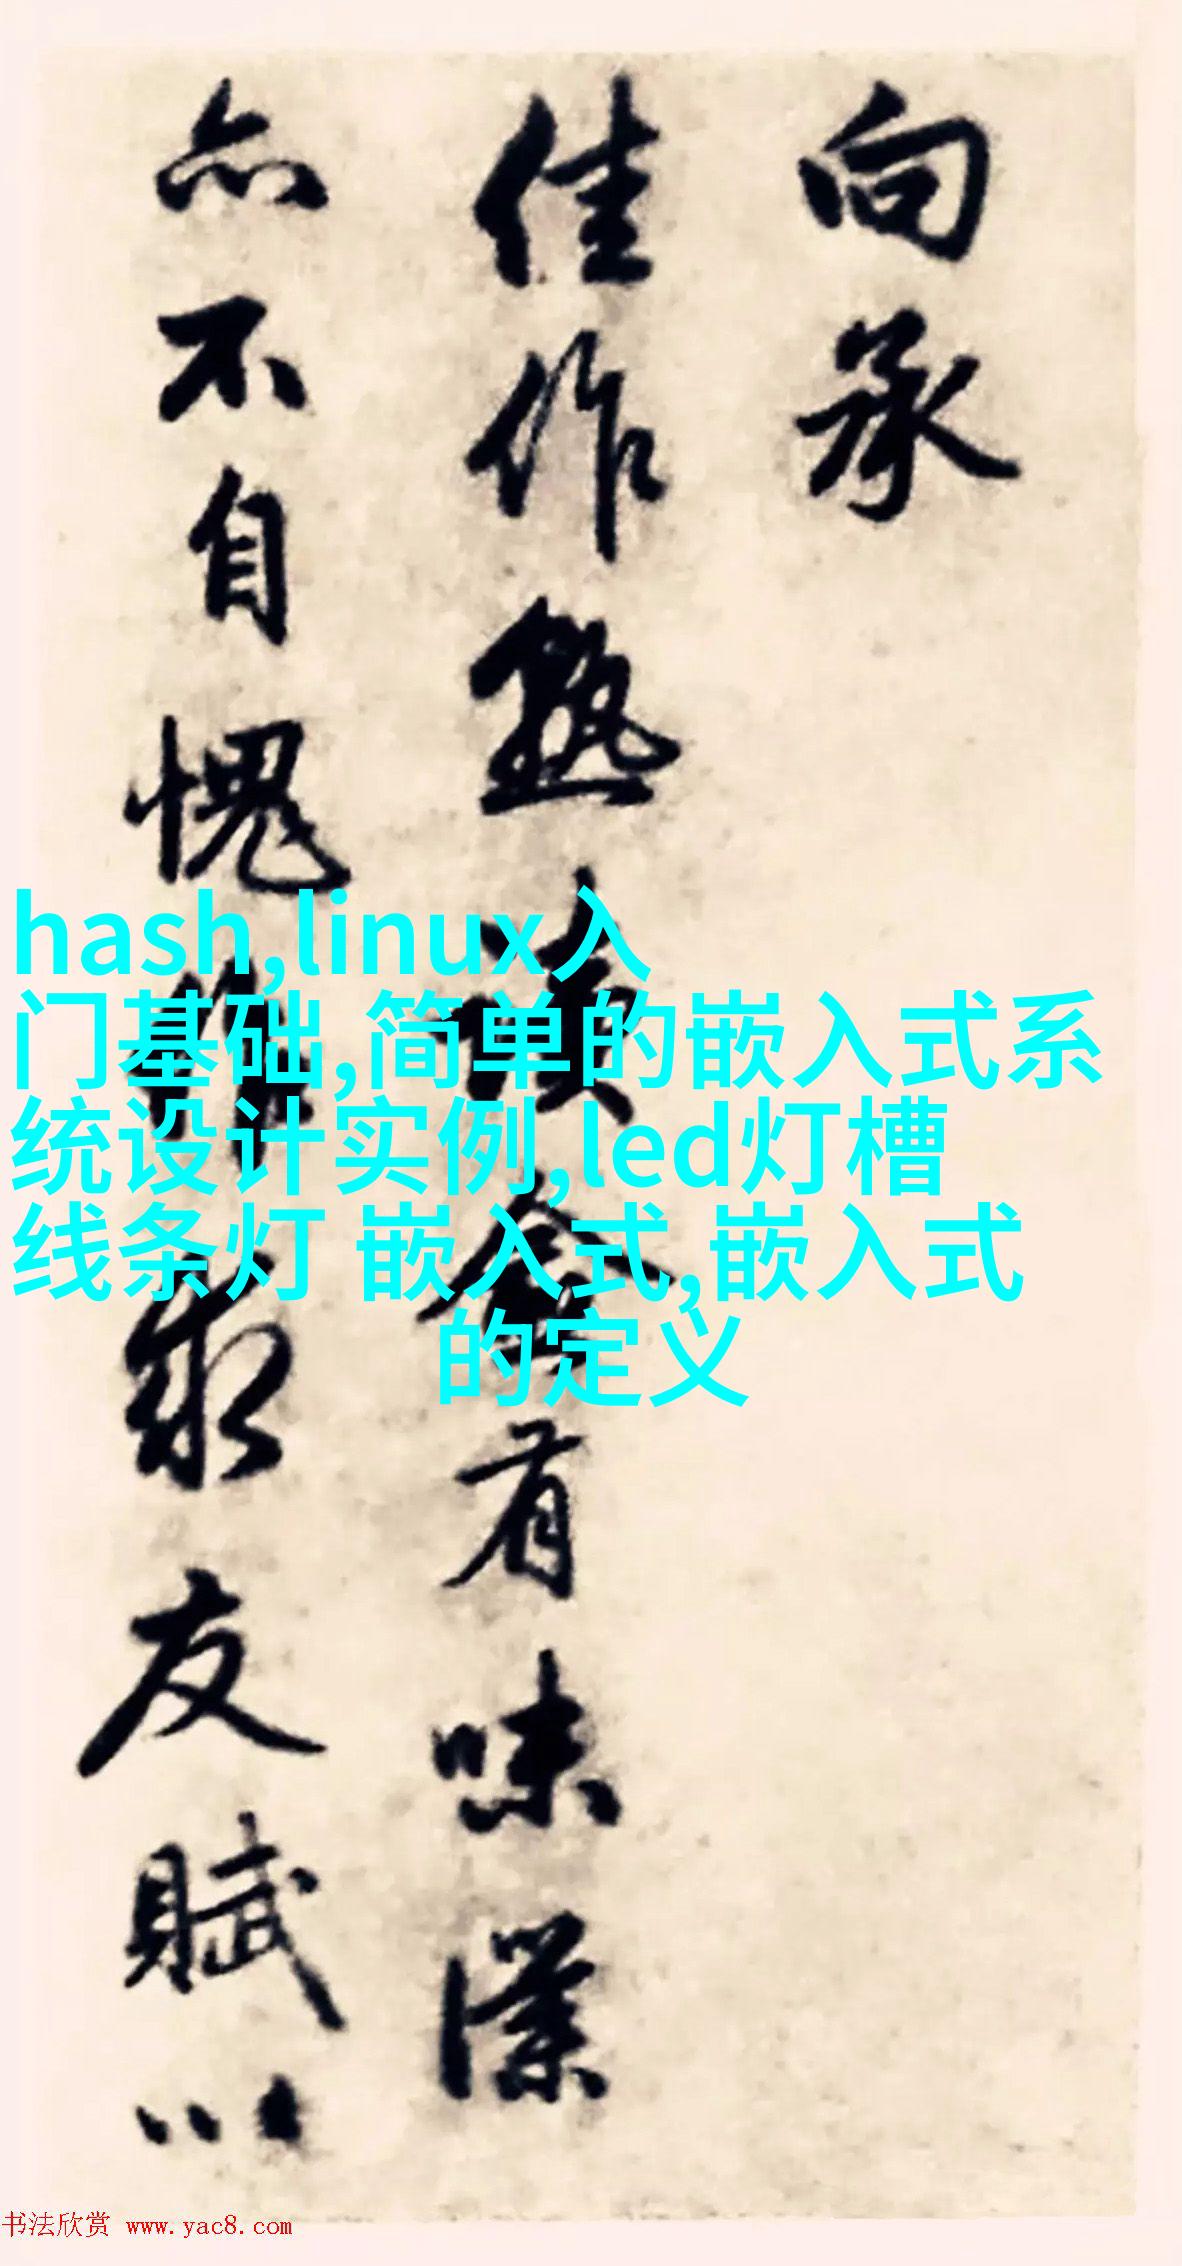 向承
佳作熟读愈有味漢
亦不自愧作報友賦以
hash,linux入
门基础,简单的嵌入式系
统设计实例,led灯槽
线条灯 嵌入式,嵌入式
的定义
书法欣赏 www.yac8.com